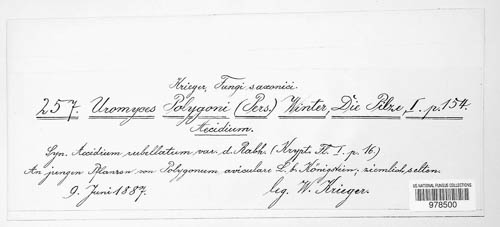 Krieger, Fungi saxonici.
257. Uromyces Polygoni (Pers.) Winter, Die Pilze, I. p. 154.
Aecidium.
Syn. Aecidium rubellatum var. d. Rabh. (Krypt. Fl. I. p. 16)
An jungen Pflanzen von Polygonum aviculare L. b. Königstein; ziemlich selten.
9. Juni 1887. leg. W. Krieger.
US NATIONAL FUNGUS COLLECTIONS
978500